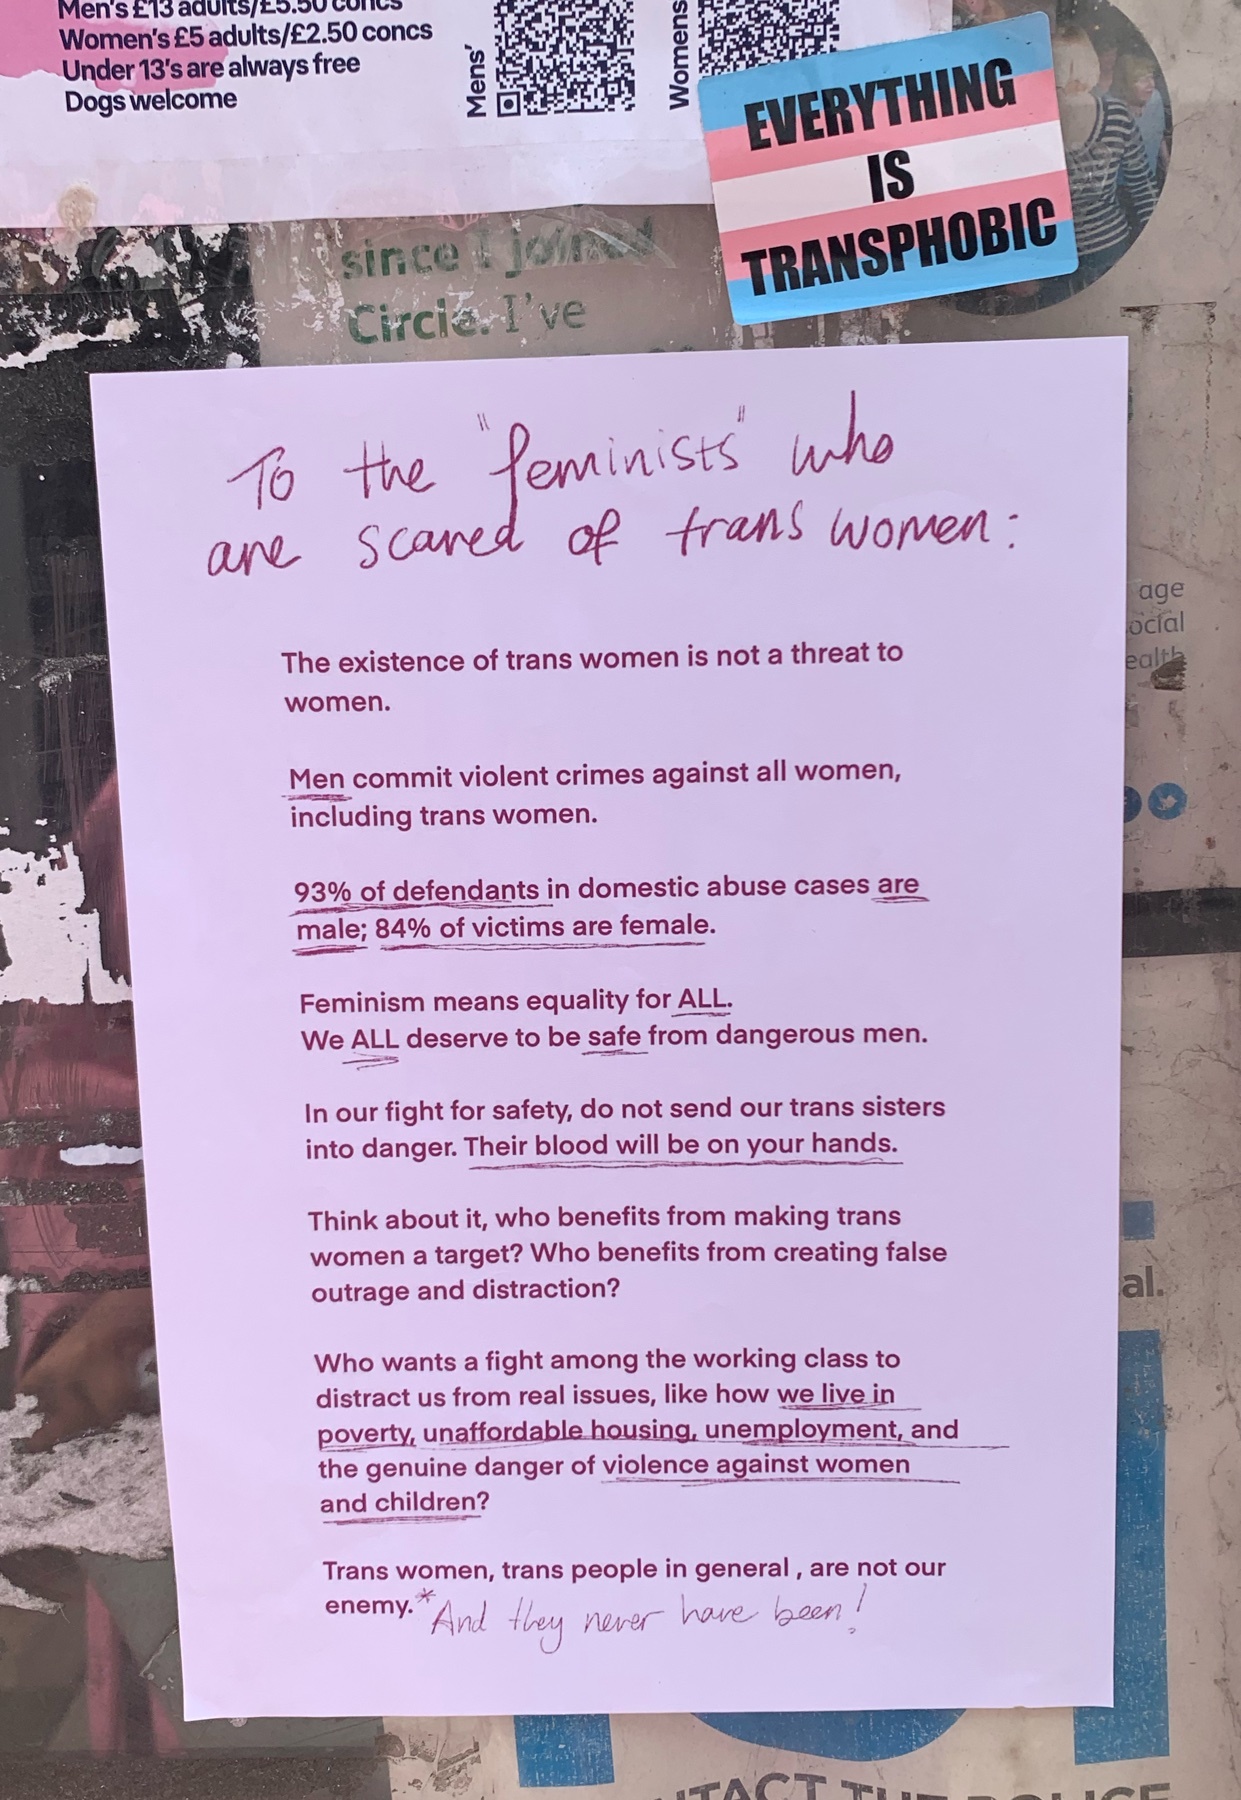 Men's £13 adults/£5.50 concs
Women's £5 adults/£2.50 concs
Under 13's are always free
Dogs welcome
Mens'
Womens
EVERYTHING
IS
TRANSPHOBIC
since I joined
Circle. I've
To the "feminists" who
are scared of trans women:
The existence of trans women is not a threat to
women.
Men commit violent crimes against all women,
including trans women.
93% of defendants in domestic abuse cases are
male; 84% of victims are female.
Feminism means equality for ALL.
We ALL deserve to be safe from dangerous men.
In our fight for safety, do not send our trans sisters
into danger. Their blood will be on your hands.
Think about it, who benefits from making trans
women a target? Who benefits from creating false
outrage and distraction?
Who wants a fight among the working class to
distract us from real issues, like how we live in
poverty, unaffordable housing, unemployment, and
the genuine danger of violence against women
and children?
Trans women, trans people in general , are not our
enemy.* And they never have been!
age
ocial
ealth
al.
NTACT THE POLICE